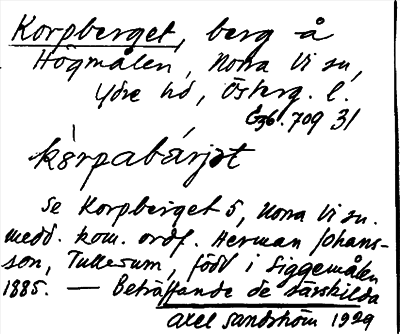 Korpberget, berg å
Högmålen, Norra Vi sn,
Ydre hd, Österg. l.
709 31
kòrpabárjət
Se Korpberget 5, Norra Vi sn.
medd. kom. ordf. Herman Johans-
son, Tullerum, född i Siggemålen
1885. — Beträffande de särskilda
Axel Sandström 1929